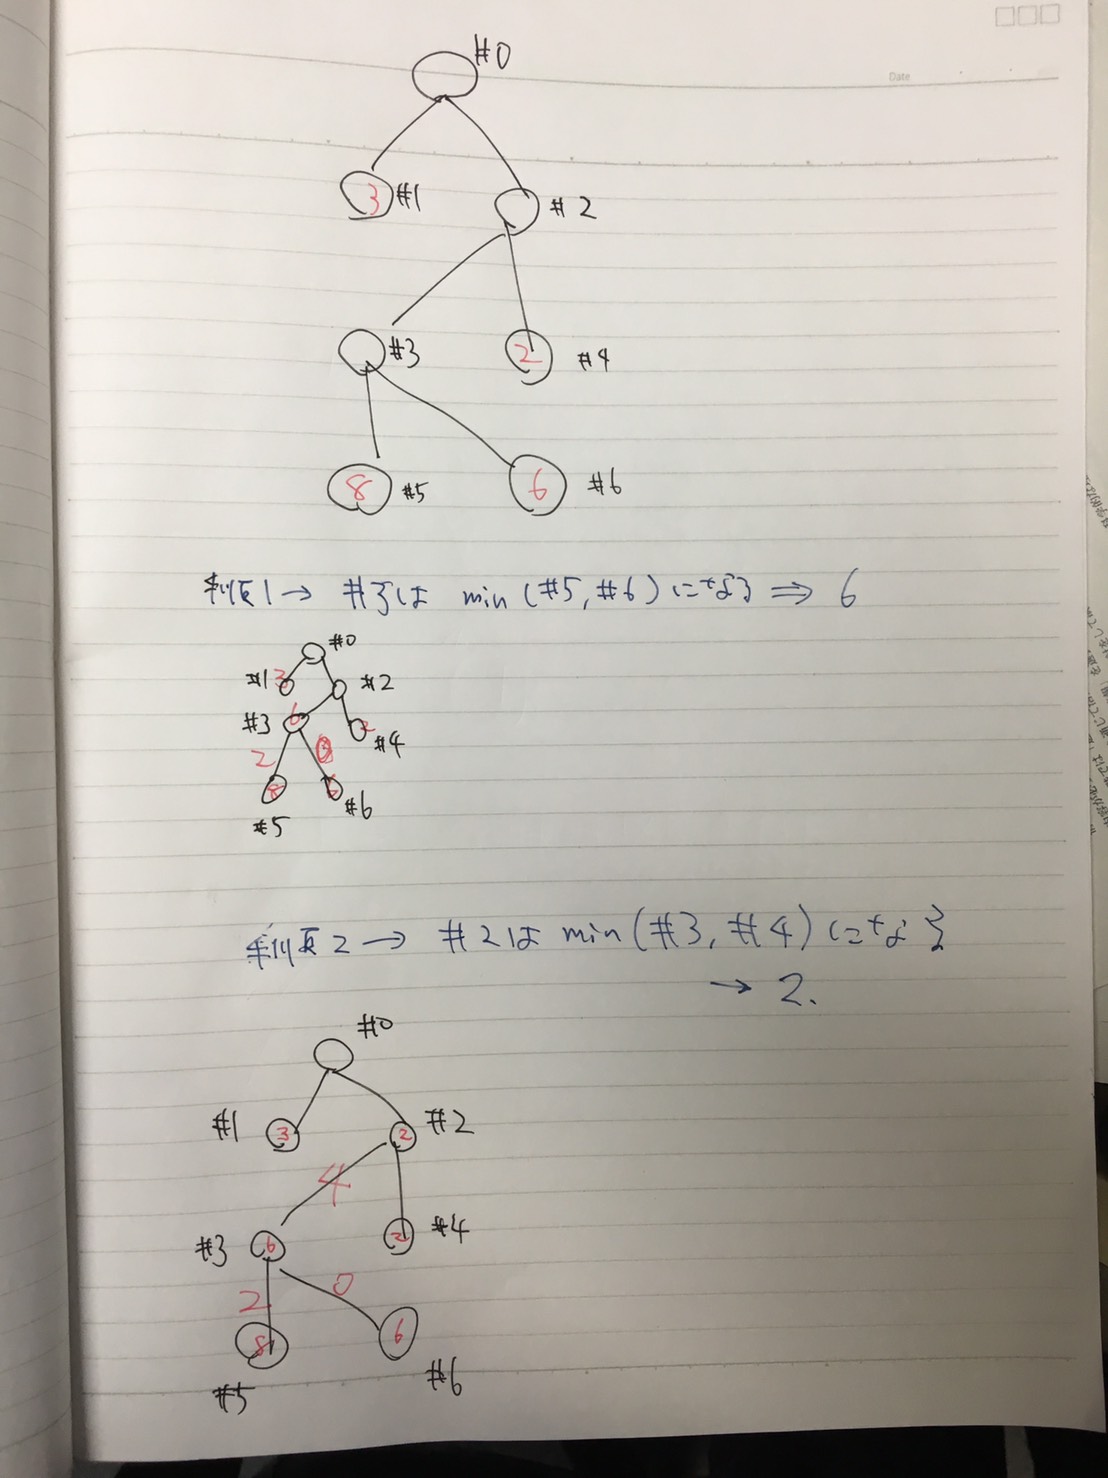 Date
#0
3 #1
#2
#3
2 #4
8 #5
6 #6
1→ #3は min(#5,#6)になる ⇒ 6
#0
#1 3
#2
6
#3
2
#4
2
8
6
#6
#5
2 → #2は min(#3,#4)になる
→ 2.
#0
#1 3
2 #2
4
#3 6
2 #4
2
0
8
6
#5
#6